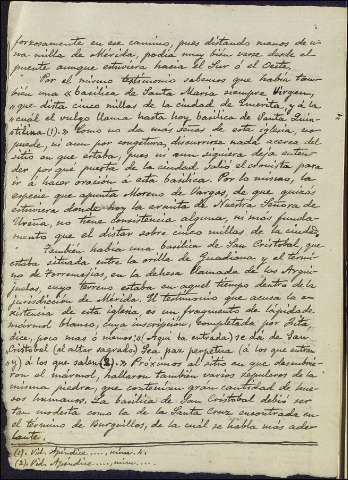 forzosamente en ese camino, pues distando menos de u-
na milla de Mérida, podía muy bien verse desde el
puente aunque estuviera hacia el Sur ó el Oeste.
Por el mismo testimonio sabemos que había tam-
bién una «basílica de Santa María siempre Virgen,
»que dista cinco millas de la ciudad de Emerita, y á la
»cuál el vulgo llama hasta hoy basílica de Santa Quin-
tilina (1).» Como no da más señas de esta iglesia, no
puede, ni aun por congetura, discurrirse nada acerca del
sitio en que estaba, pues ni aun siquiera deja enten-
der por qué puerta de la ciudad salió el cronista para
ir á hacer oración á esta basílica. Por lo mismo, la
especie que apunta Moreno de Vargas, de que quizás
estuviera donde hoy la ermita de Nuestra Señora de
Ureña, no tiene consistencia alguna, ni más funda-
mento que el distar sobre cinco millas de la ciudad.
También había una basílica de San Cristobal, que
estaba situada entre la orilla de Guadiana y el térmi-
no de Torremejías, en la dehesa llamada de los Arqui-
juelos, cuyo terreno estaba en aquel tiempo dentro de la
jurisdicción de Mérida. El testimonio que acusa la e-
xistencia de esta iglesia, es un fragmento de lápida de
mármol blanco, cuya inscripción, completada por Fita,
dice, poco más ó menos: «Aquí (la entrada) se da de San
Cristobal (al altar sagrado) Sea paz perpetua (á los que entran
»y) á los que salen (2).» Próximos al sitio en que descubrie-
ron el mármol, hallaron también varios sepulcros de la
misma piedra, que contenían gran cantidad de hue-
sos humanos. La basílica de San Cristobal debió ser
tan modesta como la de la Santa Cruz encontrada en
el término de Burguillos, de la cuál se habla más ade-
lante.
(1). Vid. Apéndice ...., núm. 4.
(2). Vid. Apéndice ...., núm. ....